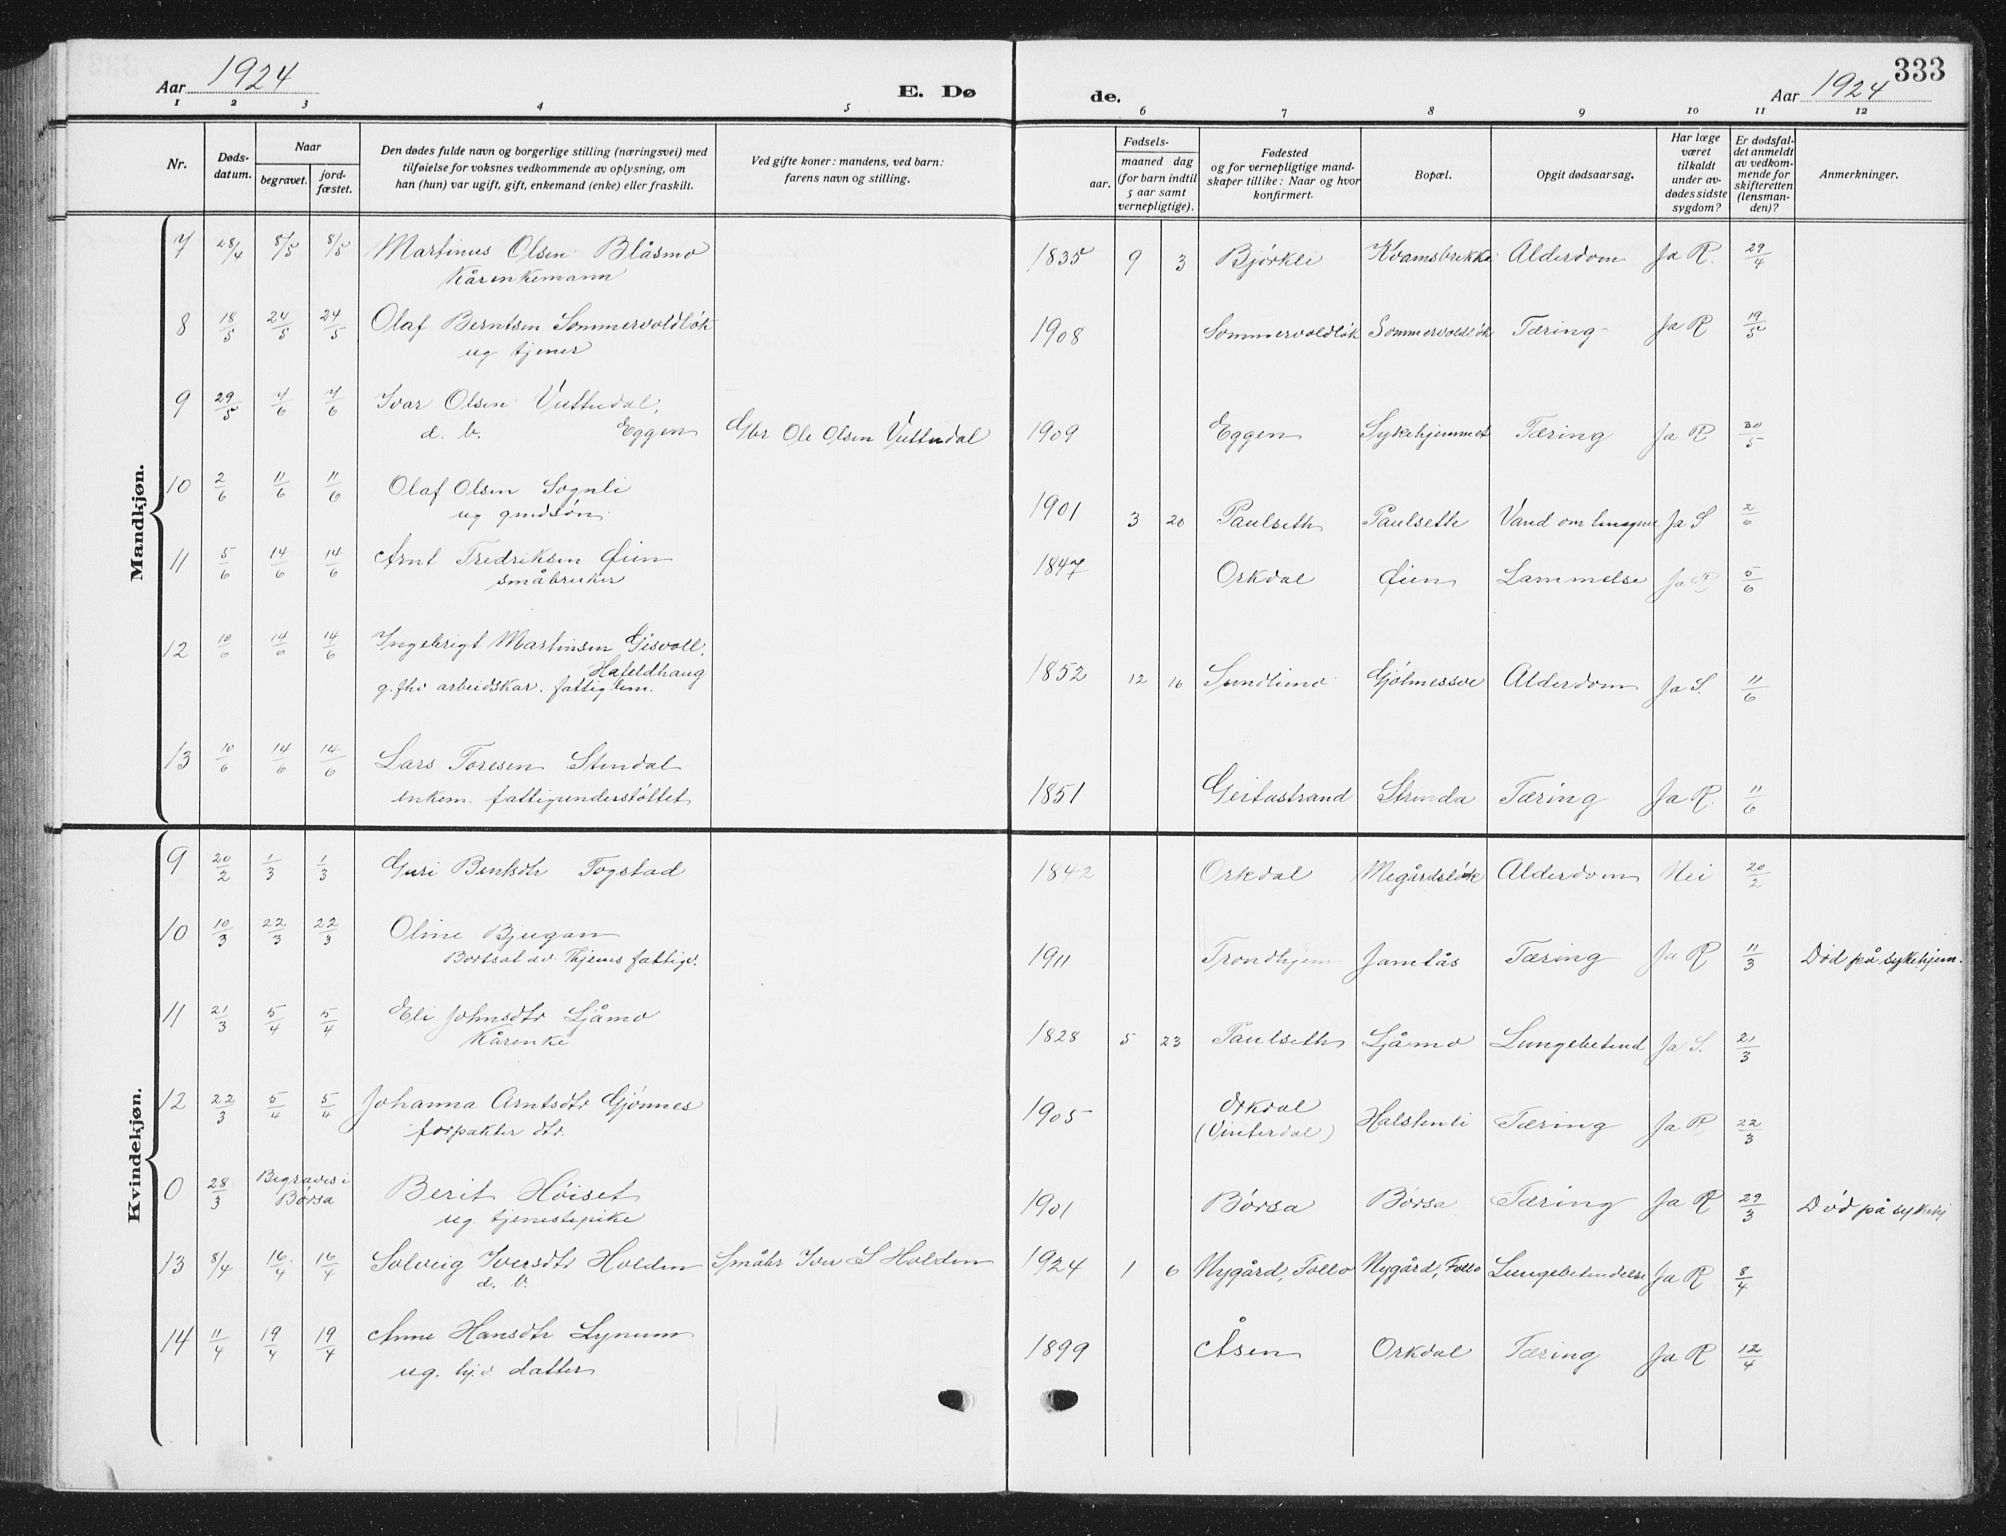 333
Aar 1924 E. Dø de. Aar 1924
1 2 3 4 5 6 7 8 9 10 11 12
Nr. Døds-datum. Naar begravet. jord-fæstet. Den dødes fulde navn og borgerlige stilling (næringsvei) med tilføielse for voksnes vedkommende av oplysning, om han (hun) var ugift, gift, enkemand (enke) eller fraskilt. Ved gifte koner: mandens, ved barn: farens navn og stilling. Fødsels- aar. maaned dag (for barn indtil 5 aar samt vernepligtige). Fødested og for vernepligtige mand-skaper tillike: Naar og hvor konfirmert. Bopæl. Opgit dødsaarsag. Har læge været tilkaldt under av-dødes sidste sygdom? Er dødsfal-det anmeldt av vedkom-mende for skifteretten (lensman-den)? Anmerkninger.
Mandkjøn.
7 28/4 8/5 8/5 Martinus Olsen Blåsmo 1835 9 3 Bjørkli Kvamsbrekke Alderdom Ja R. 29/4
Kårenkemann
8 18/5 24/5 24/5 Olaf Berntsen Sommervoldløk 1908 Sommervoldløk Sommervoldløk Tæring Ja R 19/5
ug tjener
9 29/5 7/6 7/6 Ivar Olsen Vuttudal,
d. b. Eggen Gbr Ole Olsen Vuttudal 1909 Eggen Sykehjemmet Tæring Ja R 30/5
10 2/6 11/6 11/6 Olaf Olsen Sognli 1901 3 20 Paulseth Paulseth Vand om lungene Ja S 2/6
ug gmdsøn
11 5/6 14/6 14/6 Arnt Fredriksen Øien 1847 Orkdal Øien Lammelse Ja R 5/6
småbruker
12 10/6 14/6 14/6 Ingebrigt Martinsen Gisvoll, 1852 12 16 Sundlimo Gjølmessve Alderdom Ja S. 11/6
Hafeldhaug
g. fhv arbeidskar. fattiglem.
13 10/6 14/6 14/6 Lars Toresen Stendal 1851 Geitastrand Strinda Tæring Ja R. 11/6
enkem. fattigunderstøttet
Kvindekjøn.
9 20/2 1/3 1/3 Guri Bentsdtr Togstad 1842 Orkdal Megårdsløk Alderdom Nei 20/2
10 10/3 22/3 22/3 Oline Bjugan 1911 Trondhjem Jamtås Tæring Ja R 11/3 Død på sykehjem.
Bortsat av Thjems fattigv.
11 21/3 5/4 5/4 Eli Johnsdtr Ljåmo 1828 5 23 Paulseth Ljåmo Lungebetend Ja S. 21/3
Kårenke
12 22/3 5/4 5/4 Johanna Arntsdtr Gjønnes 1905 Orkdal (Vinterdal) Halstenli Tæring Ja R. 22/3
forpakter dtr.
0 28/3 Begraves i Børsa Berit Høiset 1901 Børsa Børsa Tæring Ja R 29/3 Død på sykehj
ug. tjenestepike
13 8/4 16/4 16/4 Solveig Iversdtr Holden Småbr Iver S Holden 1924 1 6 Nygård, Follo Nygård, Follo Lungebetendelse Ja R 8/4
d. b.
14 11/4 19/4 19/4 Anne Hansdtr Lynum 1899 Åsen Orkdal Tæring Ja R 12/4
ug. hj.v. datter